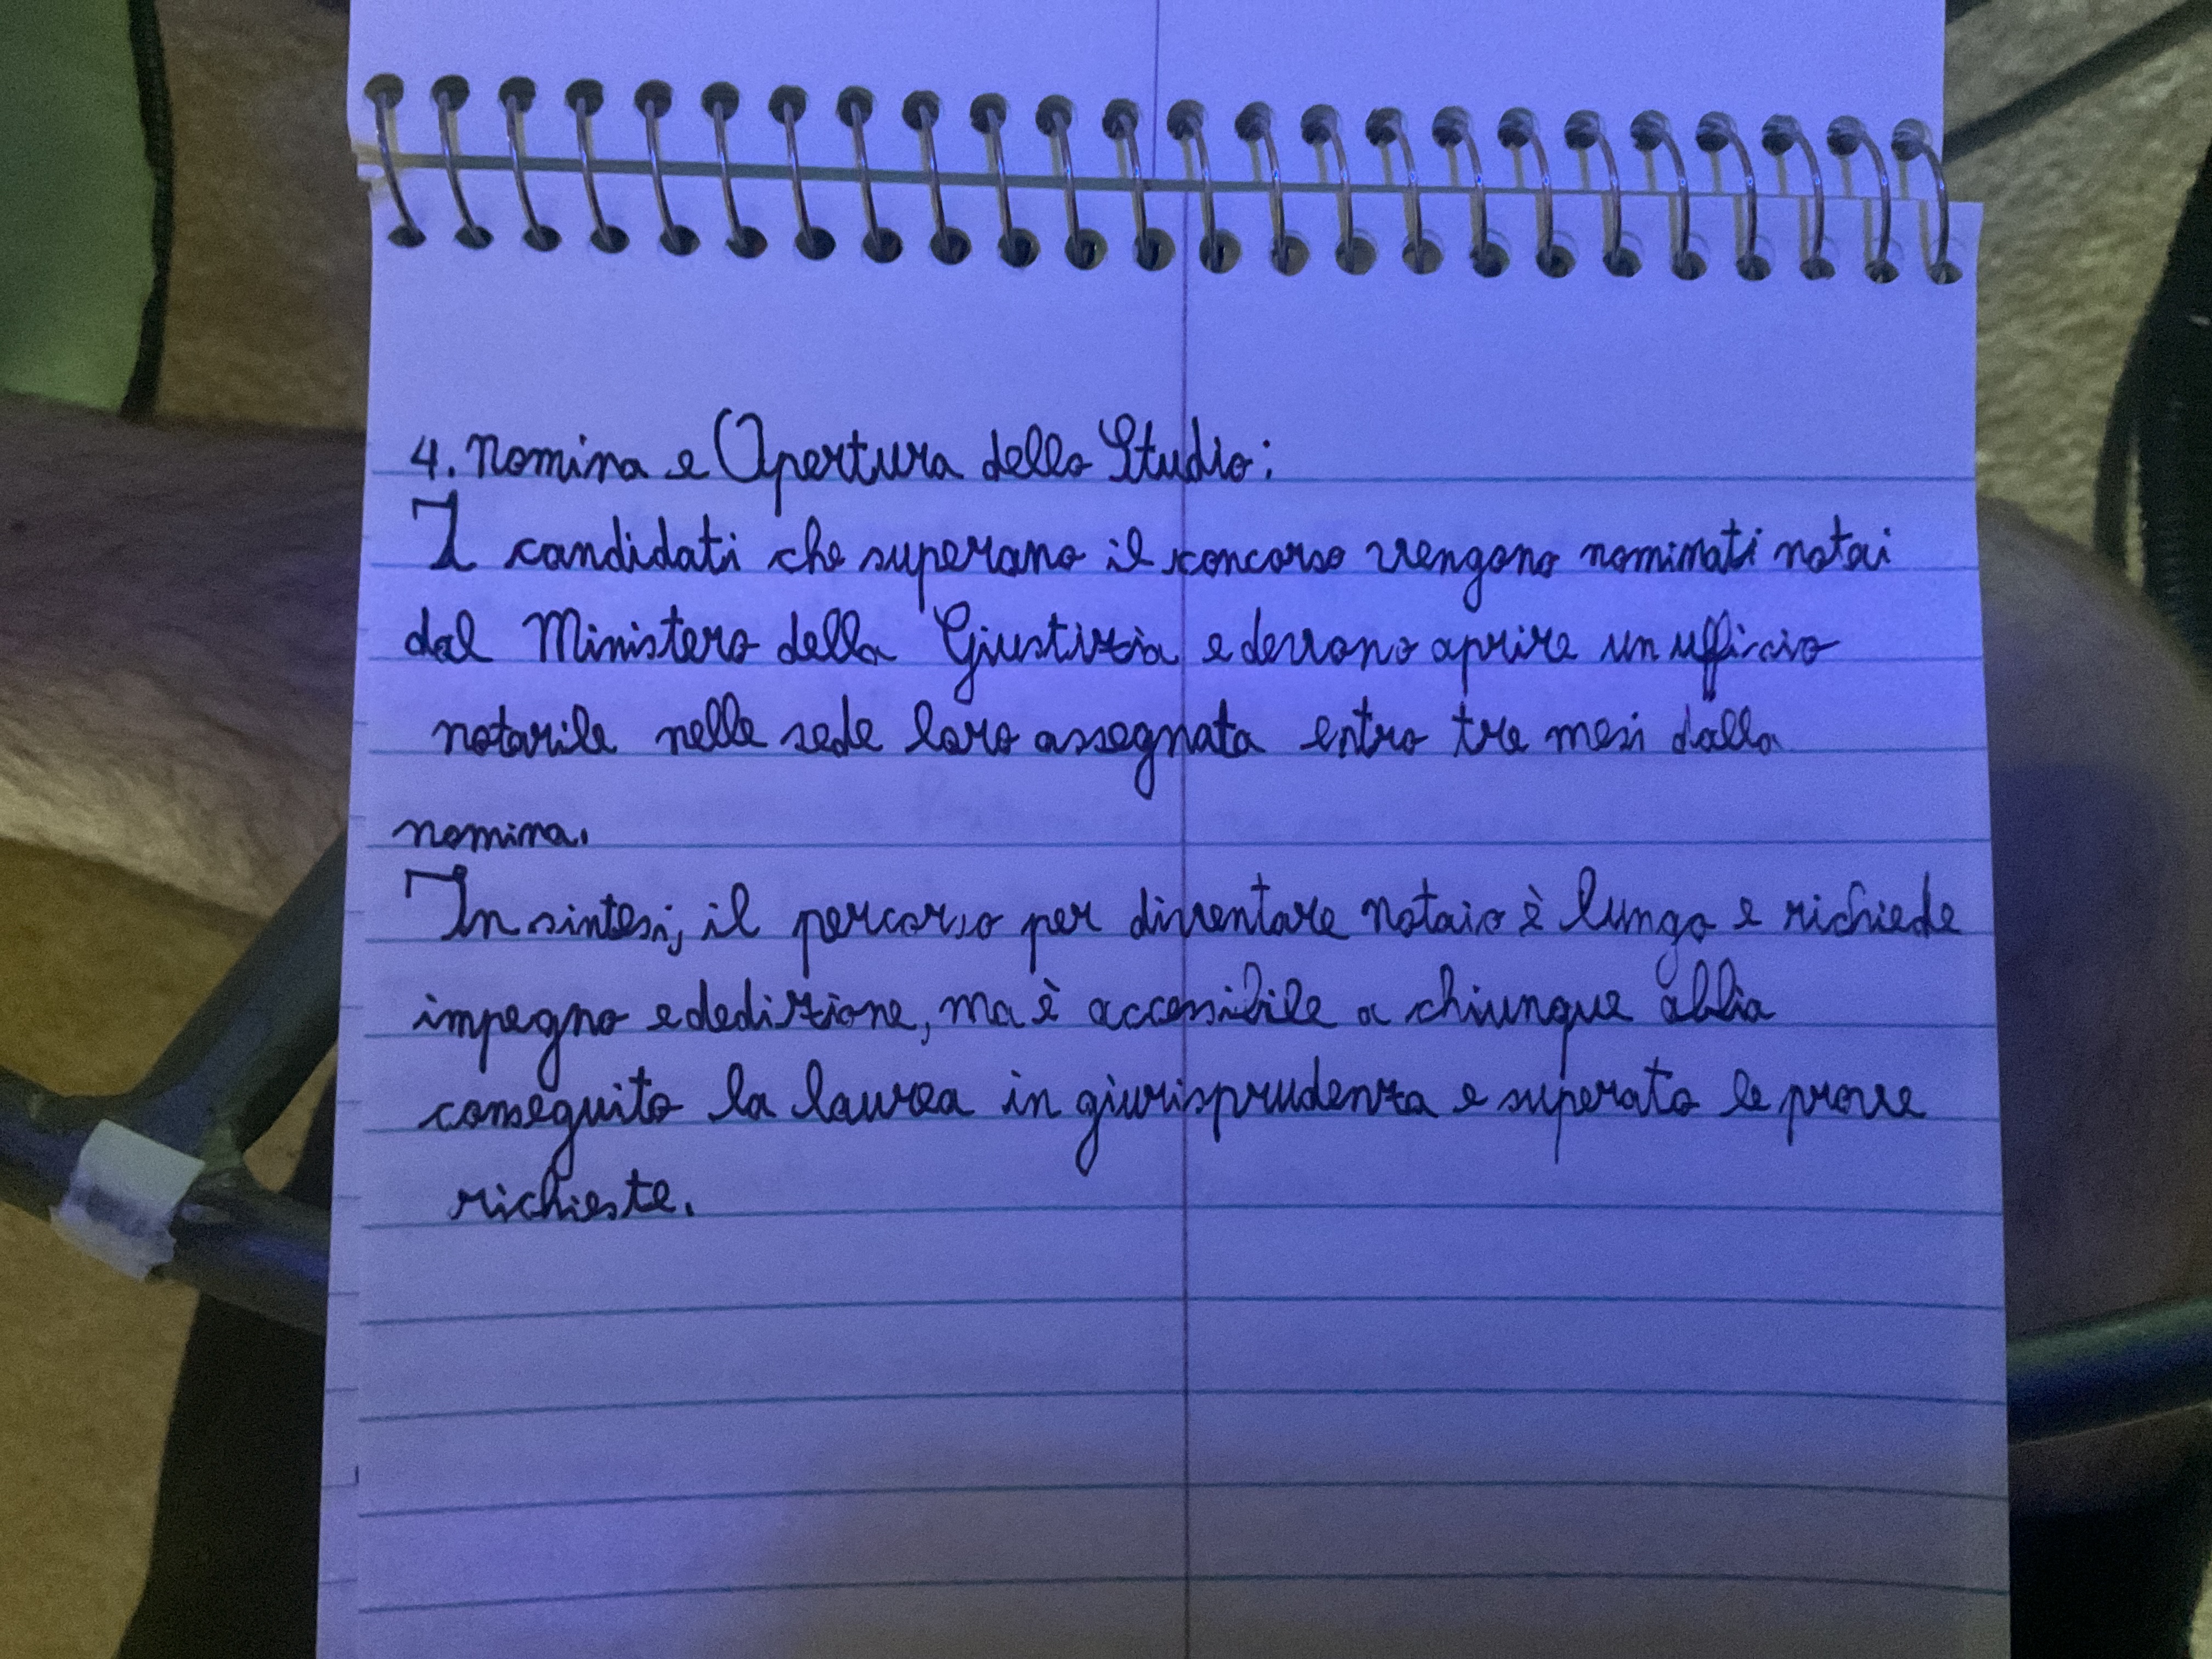 4. Nomina e Apertura dello Studio:
I candidati che superano il concorso vengono nominati notai
dal Ministero della Giustizia e devono aprire un ufficio
notarile nella sede loro assegnata entro tre mesi dalla
nomina.
In sintesi, il percorso per diventare notaio è lungo e richiede
impegno e dedizione, ma è accessibile a chiunque abbia
conseguito la laurea in giurisprudenza e superato le prove
richieste.